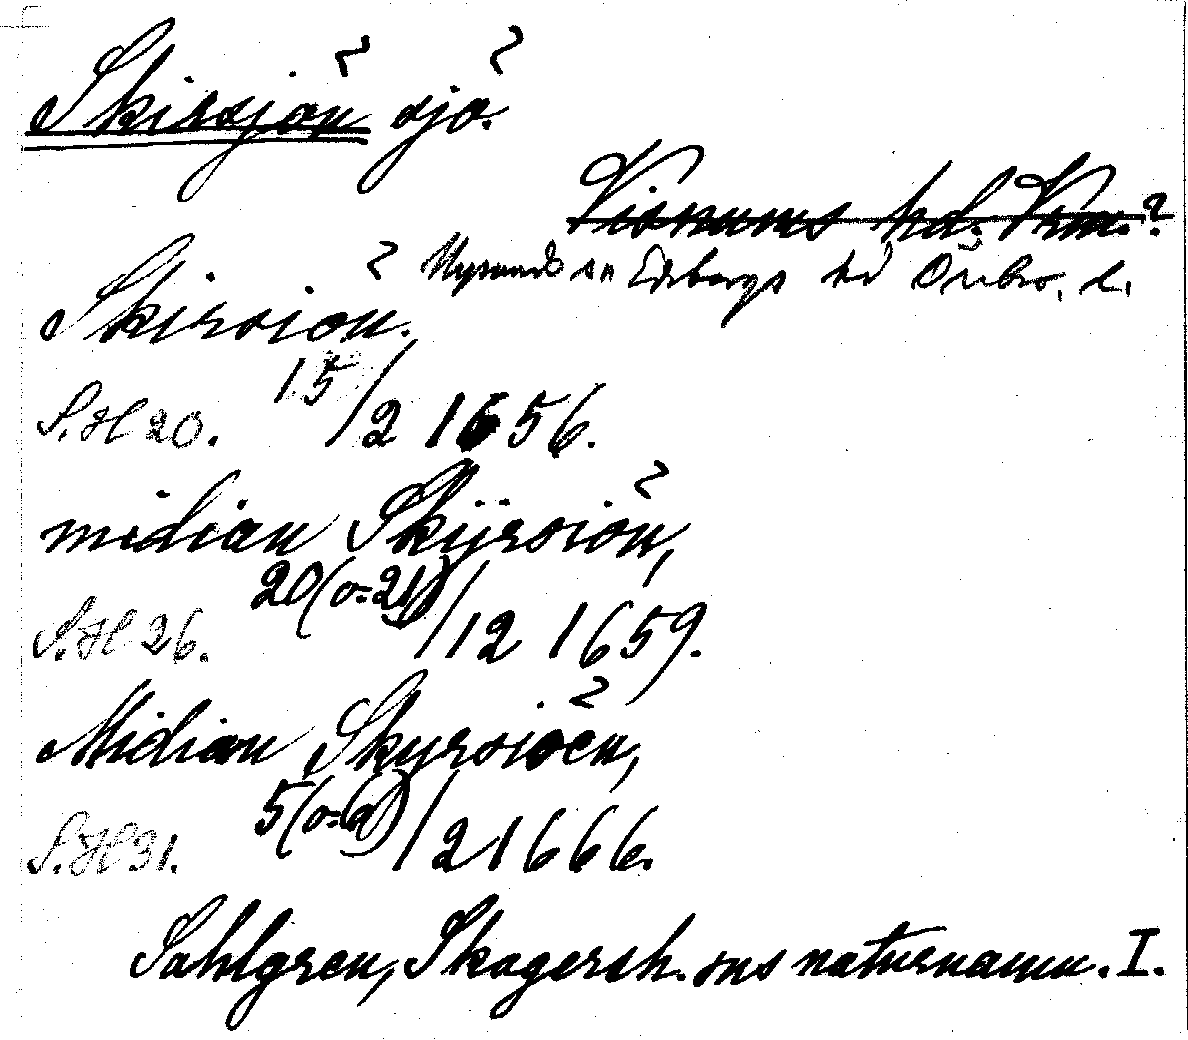 Skirsjön sjö.
Visnums hd. Vrm.?
Nysunds sn Edsbergs hd Örebro. l.
Skirsiön.
S.H 20. 15/2 1656.
midian Skijrsiön,
S.H 26. 20(o=21)/12 1659.
Midian Skyrsiöen,
S.H 31. 5(o=6)/2 1666.
Sahlgren, Skagersh. sns naturnamn. I.